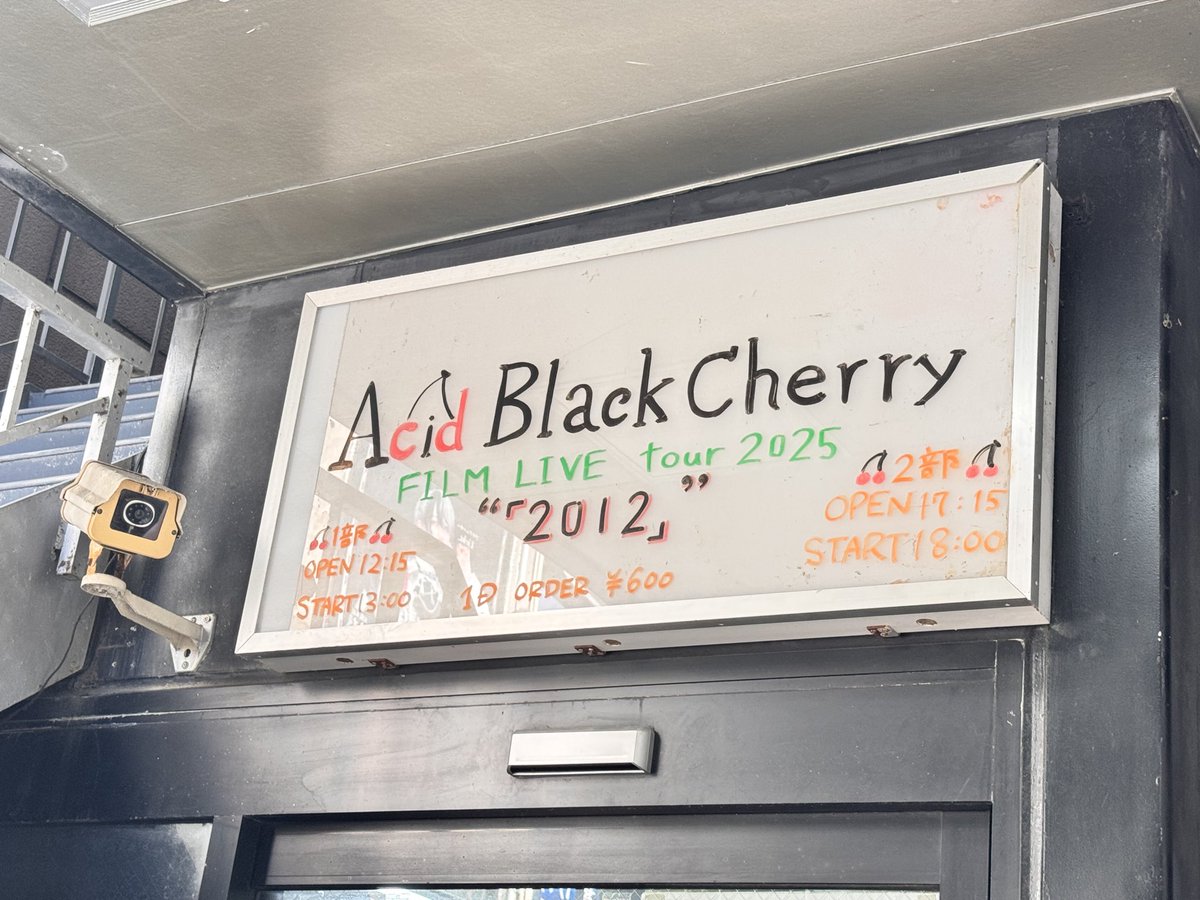 Acid Black Cherry
FILM LIVE tour 2025
“「2012」”
1部
OPEN 12:15
START 13:00
1D ORDER ¥600
2部
OPEN 17:15
START 18:00